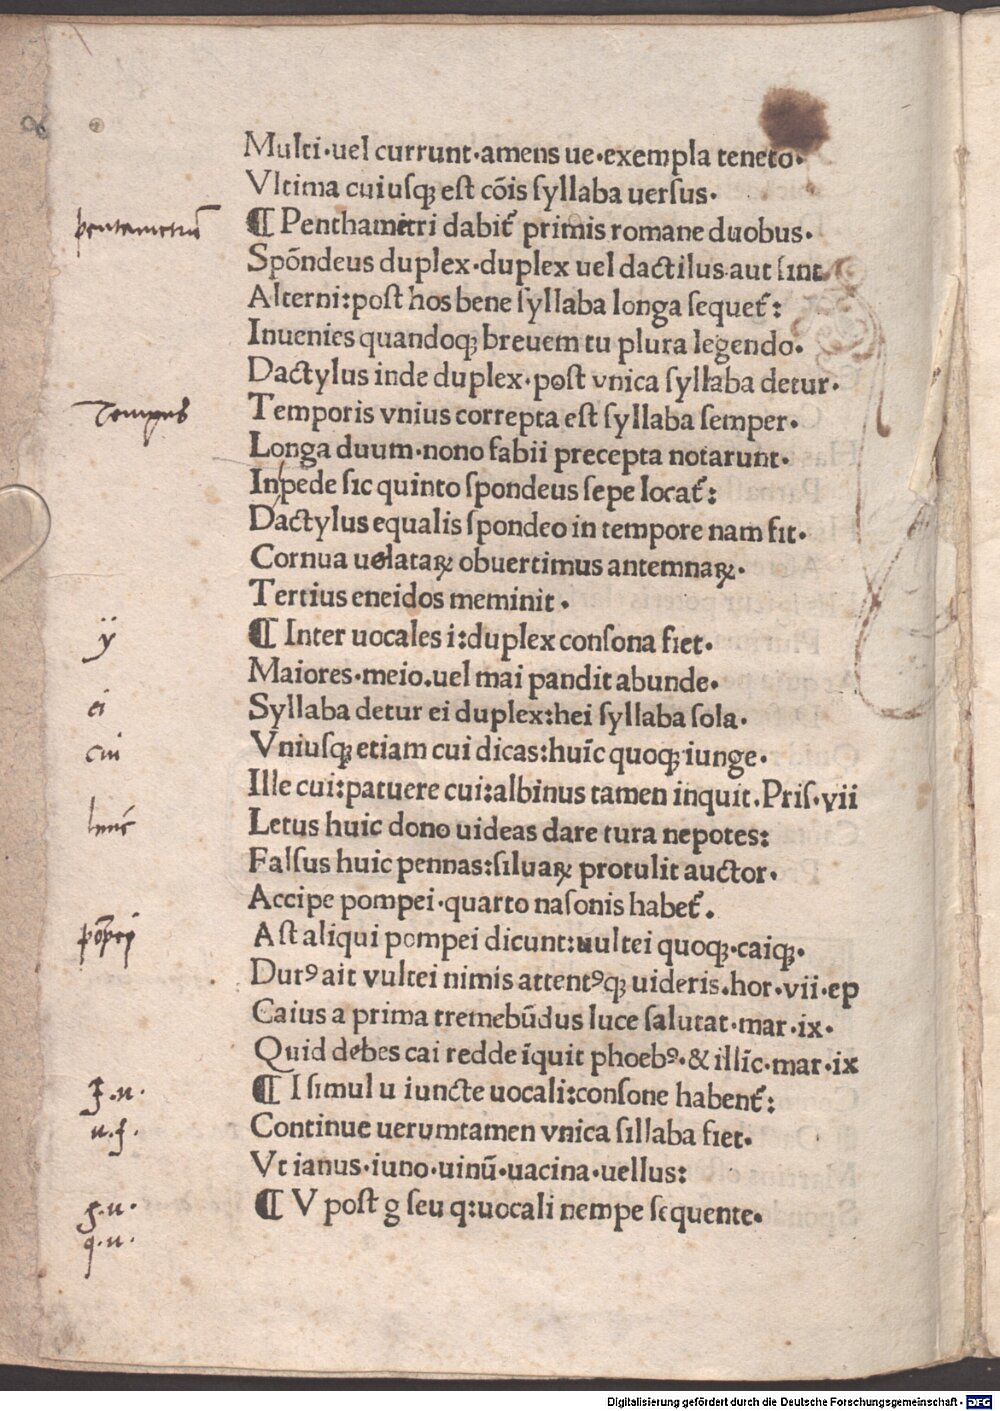 Multi·uel currunt·amens ue·exempla teneto·
Vltima cuiusqꝫ est cōis syllaba uersus·
pentametrū
¶ Penthametri dabit᷑ primis romane duobus·
Spōndeus duplex·duplex uel dactilus aut sint
Alterni:post hos bene syllaba longa sequet᷑:
Inuenies quandoqꝫ breuem tu plura legendo·
Dactylus inde duplex·post vnica syllaba detur·
Tempus
Temporis vnius correpta est syllaba semper·
Longa duum·nono fabii precepta notarunt·
In pede sic quinto spondeus sepe locat᷑:
Dactylus equalis spondeo in tempore nam fit·
Cornua uelataꝝ obuertimus antemnaꝝ·
Tertius eneidos meminit·
ÿ
¶ Inter uocales i:duplex consona fiet·
Maiores·meio.uel mai pandit abunde·
ei
Syllaba detur ei duplex:hei syllaba sola·
cui
Vniusqꝫ etiam cui dicas:huīc quoqꝫ iunge·
Ille cui:patuere cui:albinus tamen inquit.Pris·vii
Letus huic dono uideas dare tura nepotes:
Falsus huic pennas:siluaꝝ protulit auctor·
Accipe pompei·quarto nasonis habet᷑.
pōpei
Ast aliqui pompei dicunt:uultei quoqꝫ·caiqꝫ·
Durꝰ ait vultei nimis attentꝰqꝫ uideris.hor·vii·ep
Caius a prima tremebūdus luce salutat·mar·ix·
Quid debes cai redde īquit phoebꝰ·& illīc·mar·ix
I·u·
¶ I simul u iuncte uocali:consone habent᷑:
Continue uerumtamen vnica sillaba fiet·
Vt ianus·iuno·uinū·uacina·uellus:
g·u·
¶ V post g seu q:uocali nempe sequente·
q·u·
Digitalisierung gefördert durch die Deutsche Forschungsgemeinschaft · DFG